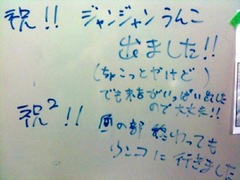 祝!! ジャンジャンうんこ
出ました!!
(ちょこっとだけど)
でも がいっぱい出ました
ので大丈夫!!
祝²!! の部 終わっても
ウンコに行きました